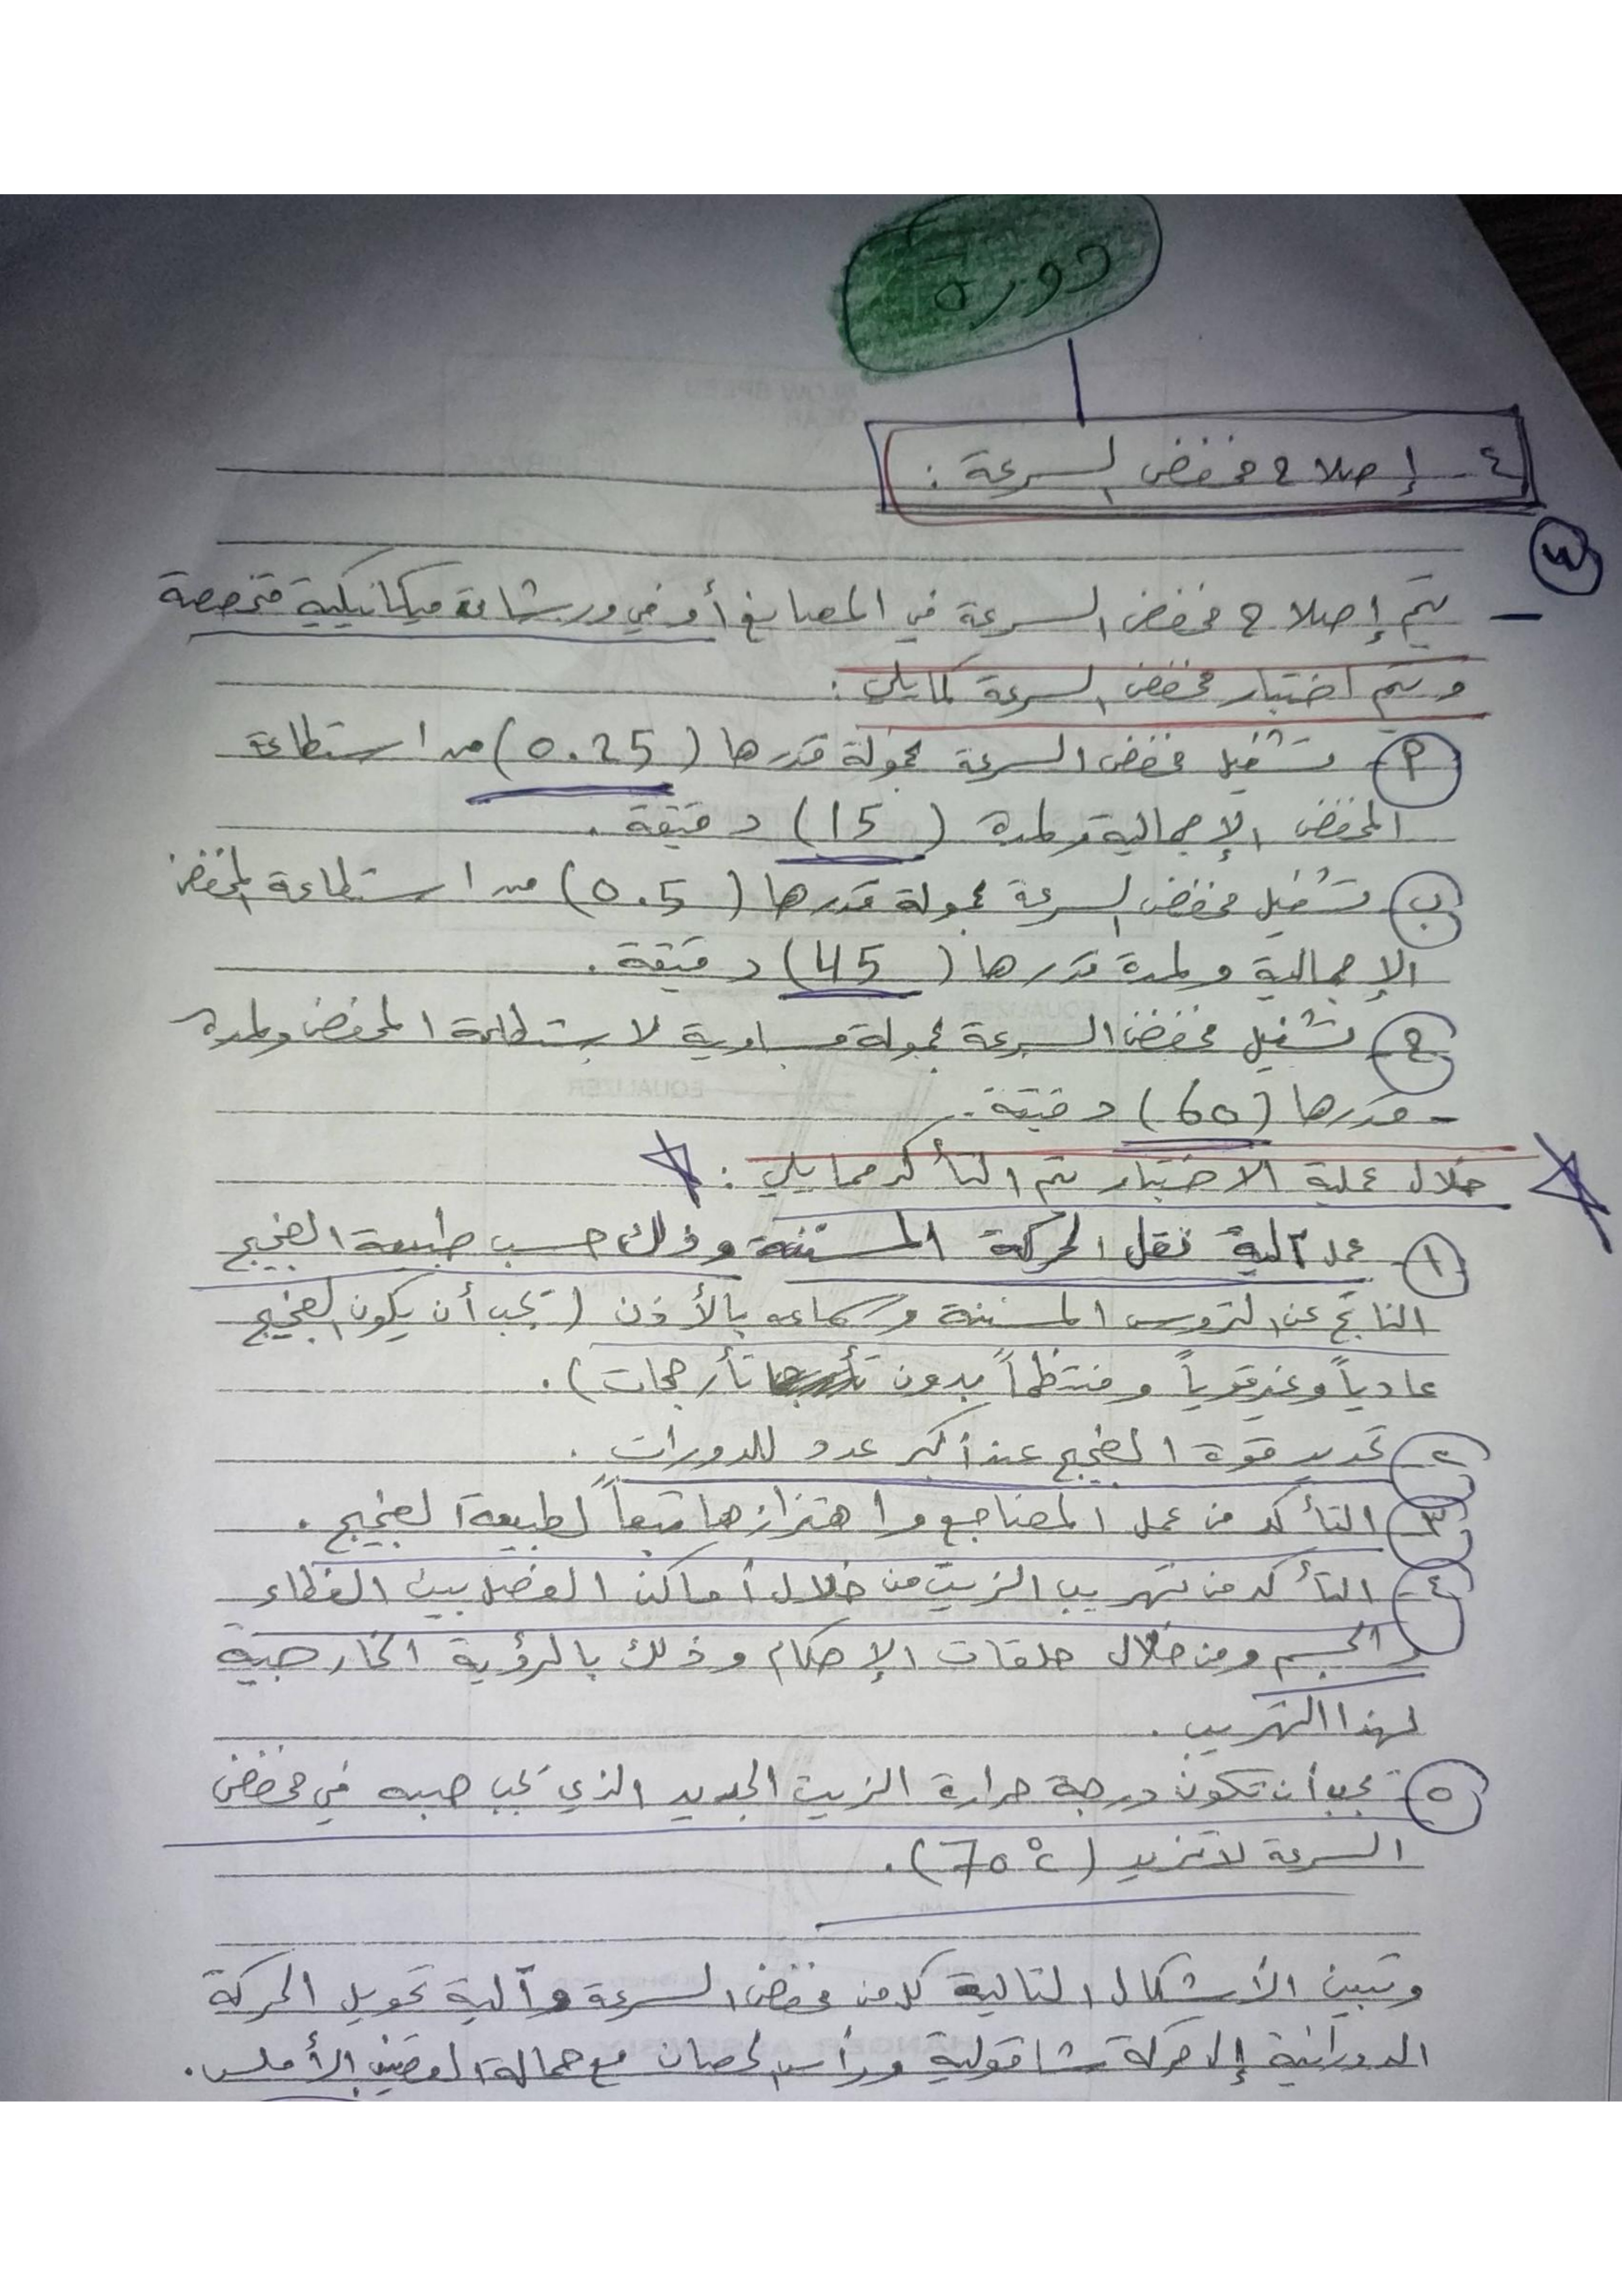 دورة
٤- إصلاح مخفض السرعة :
س
- يتم إصلاح مخفض السرعة في المصانع أو في ورشات ميكانيكية متخصصة
ويتم اختبار مخفض السرعة كمايلي :
أ- تشغيل مخفض السرعة بحمولة قدرها (0.25) من استطاعة
المخفض الإجمالية ولمدة (15) دقيقة .
ب- تشغيل مخفض السرعة بحمولة قدرها (0.5) من استطاعة المخفض
الإجمالية ولمدة قدرها (45) دقيقة .
ج- تشغيل مخفض السرعة بحمولة مساوية لاستطاعة المخفض ولمدة
- قدرها (60) دقيقة .
خلال عملية الاختبار يتم التأكد ممايلي :
١- عمل آلية نقل الحركة المسننة وذلك حسب طبيعة الضجيج
الناتج عن التروس المسننة وسماعه بالأذن (يجب أن يكون الضجيج
عادياً وغير قوياً ومنتظماً بدون تأرجحات) .
٢- تحديد قوة الضجيج عند أكبر عدد للدورات .
٣- التأكد من عمل المضاجع واهتزازها تبعاً لطبيعة الضجيج .
٤- التأكد من تهريب الزيت من خلال أماكن الفصل بين الغطاء
والجسم ومن خلال حلقات الإحكام وذلك بالرؤية الخارجية
لهذا التهريب .
٥- يجب أن تكون درجة حرارة الزيت الجديد الذي يجب صبه في مخفض
السرعة لا تزيد (70°C) .
وتبين الأشكال التالية كل من مخفض السرعة وآلية تحويل الحركة
الدورانية إلى حركة شاقولية ورأس الحصان مع حمالة القضيب الأملس .